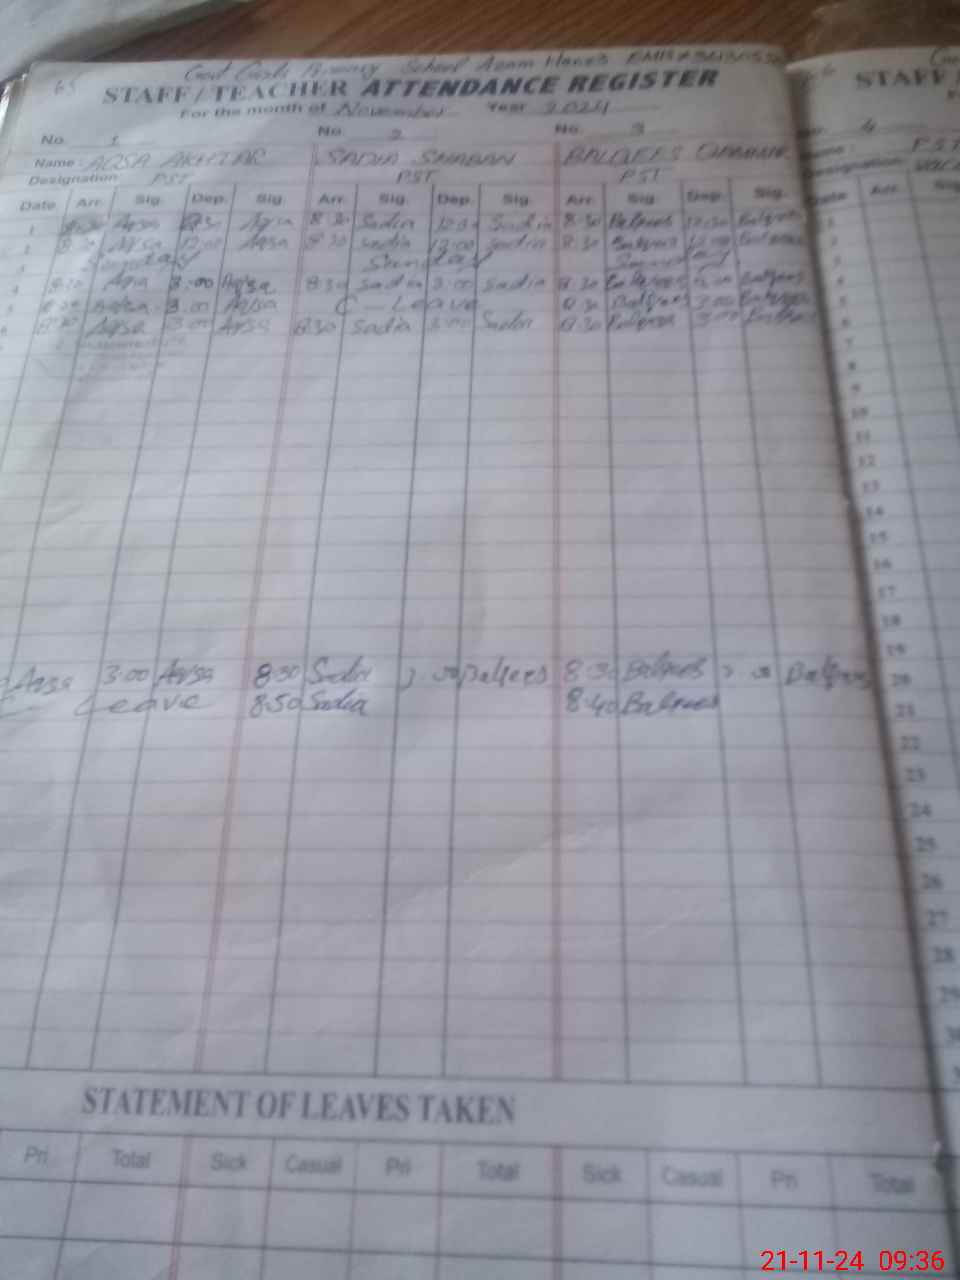 65 Govt Girls Primary School Azam
STAFF/TEACHER ATTENDANCE REGISTER STAFF/
For the month of November Year 2024
No. 1 No. 2 No. 3 4
Name: AQSA AKHTAR SADIA SHABAN BALQEES
Designation: PST PST PST PST
Date Arr. Sig. Dep. Sig. Arr. Sig. Dep. Sig. Arr. Sig. Dep. Sig. Date Arr. Sig.
1 8:30 Aqsa 12:30 Aqsa 8:30 Sadia Sadia 8:30 Balqees 12:30 Balqees 1
2 8:30 Aqsa 12:00 Aqsa 8:30 Sadia 12:00 Sadia 8:30 Balqees 12:00 Balqees 2
3 Sunday Sunday Sunday 3
4 8:30 Aqsa 3:00 Aqsa 8:30 Sadia 3:00 Sadia 8:30 Balqees 3:00 Balqees 4
5 8:30 Aqsa 3:00 Aqsa C - Leave 8:30 Balqees 3:00 Balqees 5
6 8:30 Aqsa 3:00 Aqsa 8:30 Sadia 3:00 Sadia 8:30 Balqees 3:00 Balqees 6
7
8
9
10
11
12
13
14
15
16
17
18
19
Aqsa 3:00 Aqsa 8:30 Sadia Balqees 8:30 Balqees Balqees 20
C - Leave 8:50 Sadia 8:40 Balqees 21
22
23
24
25
26
27
28
29
30
STATEMENT OF LEAVES TAKEN
Pri Total Sick Casual Pri Total Sick Casual Pri Total
21-11-24 09:36